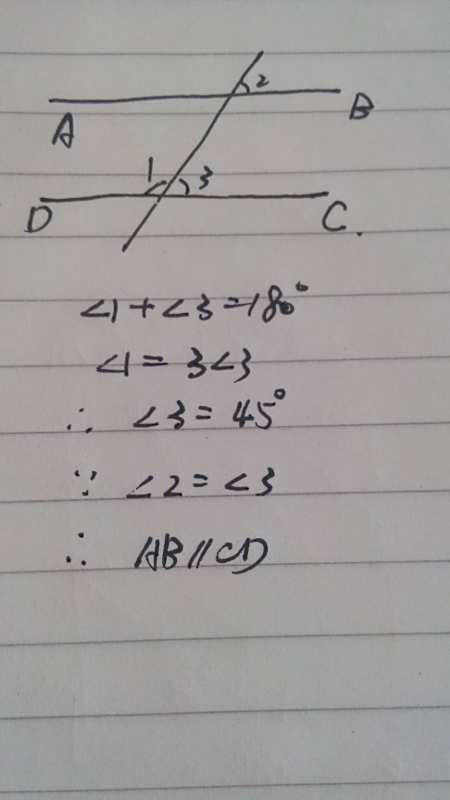 2
A
B
1
3
D
C.
∠1+∠3=180°
∠1=3∠3
∴ ∠3=45°
∵ ∠2=∠3
∴ AB//CD